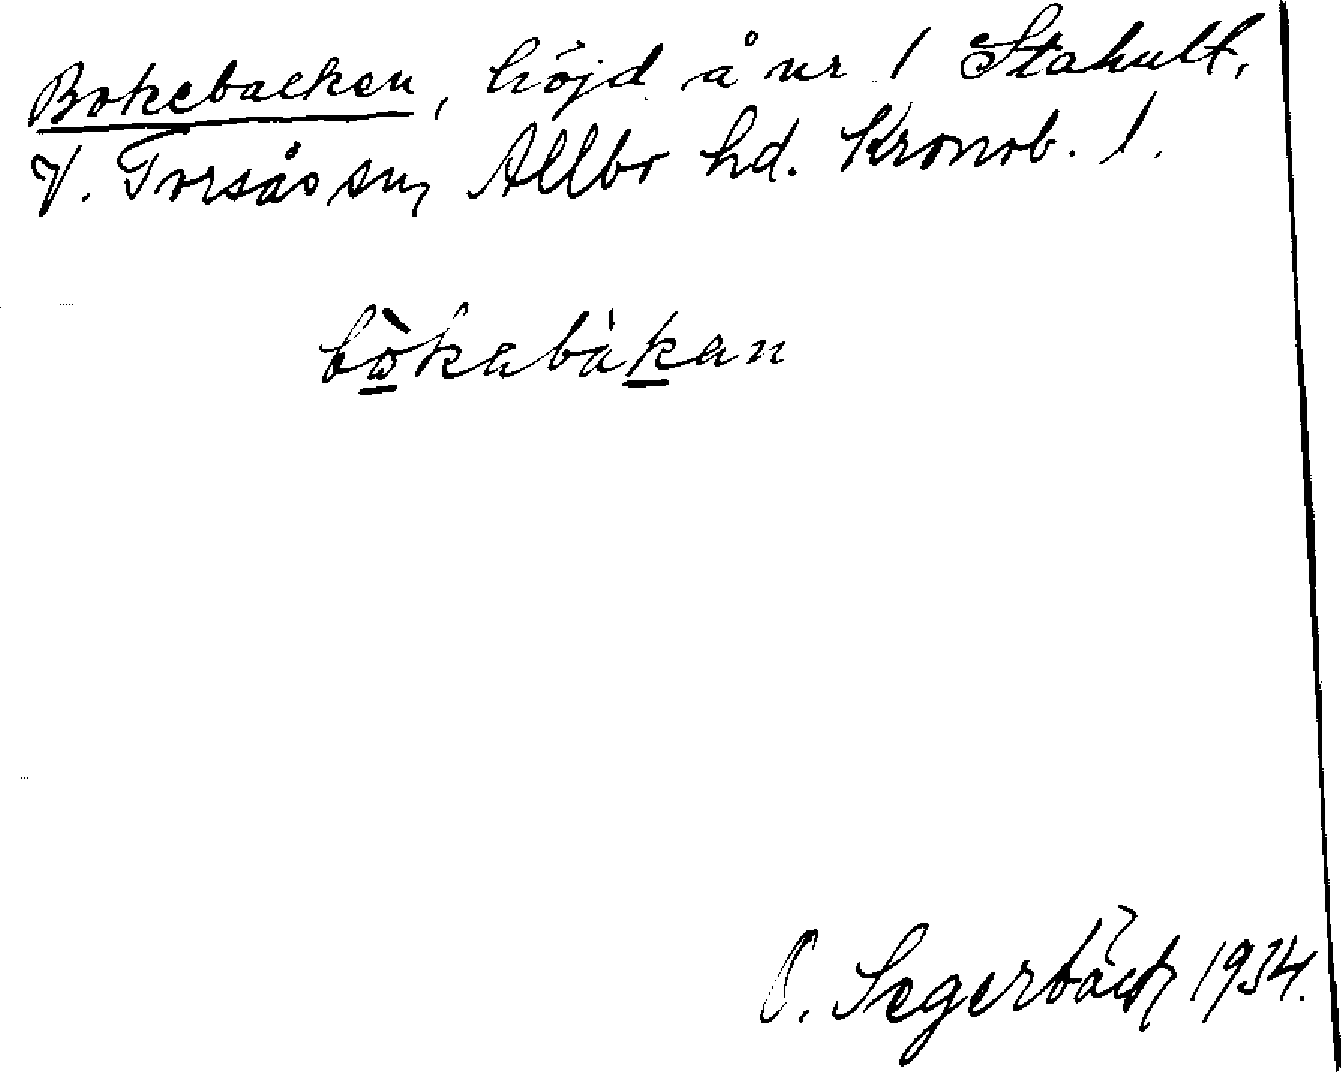 Bokebacken, höjd å nr 1 Stahult,
V. Torsås sn, Allbo hd. Kronob. l.
bòkabàkan
B. Segerbäck 1934.